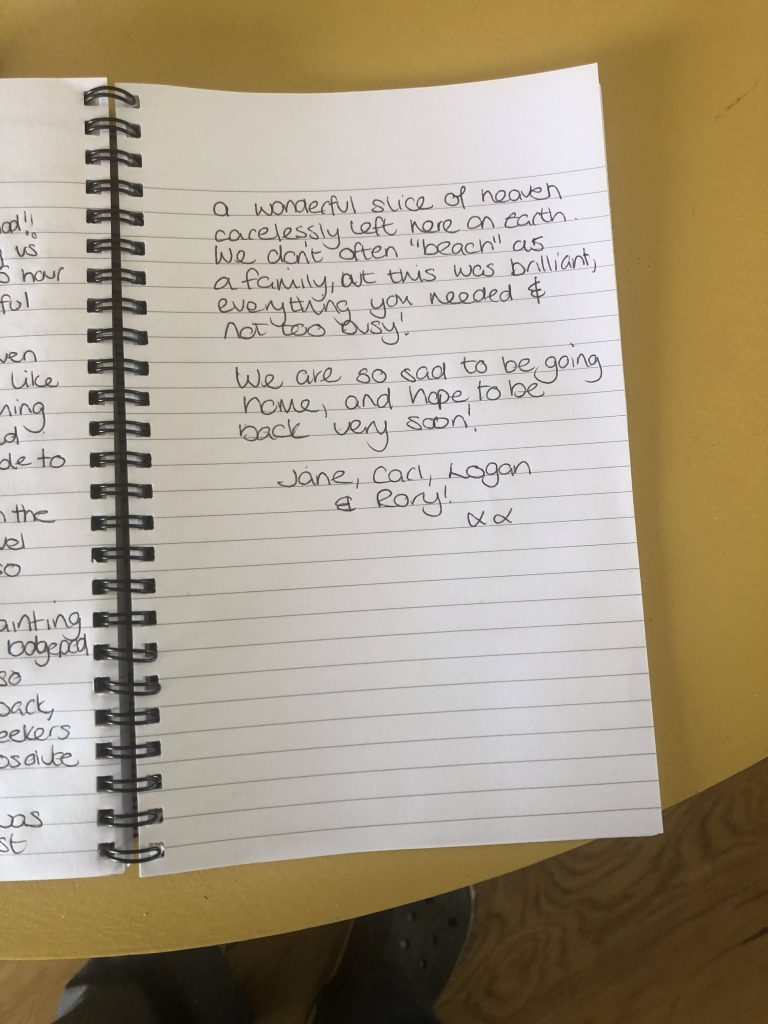 ad!!
us
hour
ful
ven
like
ning
d
de to
n the
vel
so
ainting
so
back,
eekers
bsolute
was
st
a wonderful slice of heaven
carelessly left here on Earth.
We don't often "beach" as
a family, but this was brilliant,
everything you needed &
not too busy!
We are so sad to be going
home, and hope to be
back very soon!
Jane, Carl, Logan
& Rory!
xx